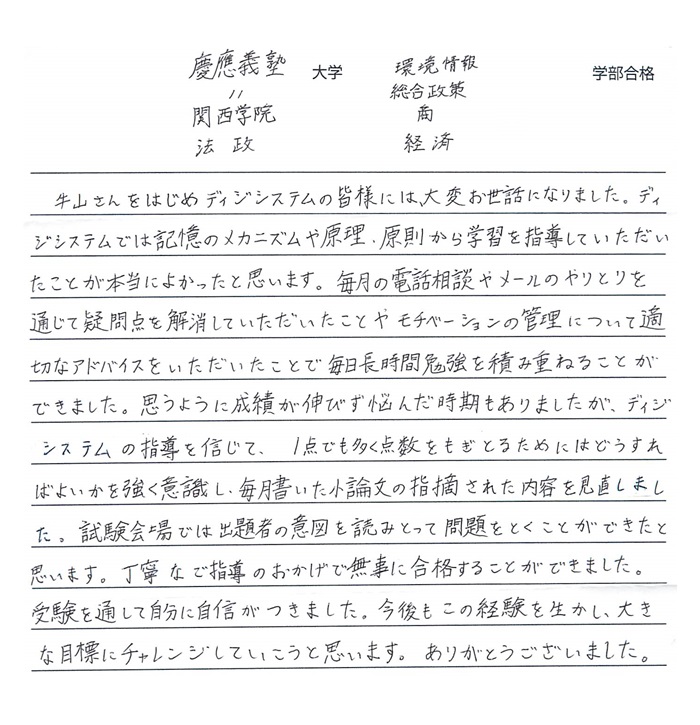 慶應義塾 大学 環境情報 学部合格
〃 総合政策
関西学院 商
法政 経済
牛山さんをはじめディジシステムの皆様には、大変お世話になりました。ディ
ジシステムでは記憶のメカニズムや原理・原則から学習を指導していただい
たことが本当によかったと思います。毎月の電話相談やメールのやりとりを
通じて疑問点を解消していただいたことやモチベーションの管理について適
切なアドバイスをいただいたことで毎日長時間勉強を積み重ねることが
できました。思うように成績が伸びず悩んだ時期もありましたが、ディジ
システムの指導を信じて、1点でも多く点数をもぎとるためにはどうすれ
ばよいかを強く意識し、毎月書いた小論文の指摘された内容を見直しまし
た。試験会場では出題者の意図を読みとって問題をとくことができたと
思います。丁寧なご指導のおかげで無事に合格することができました。
受験を通して自分に自信がつきました。今後もこの経験を生かし、大き
な目標にチャレンジしていこうと思います。ありがとうございました。